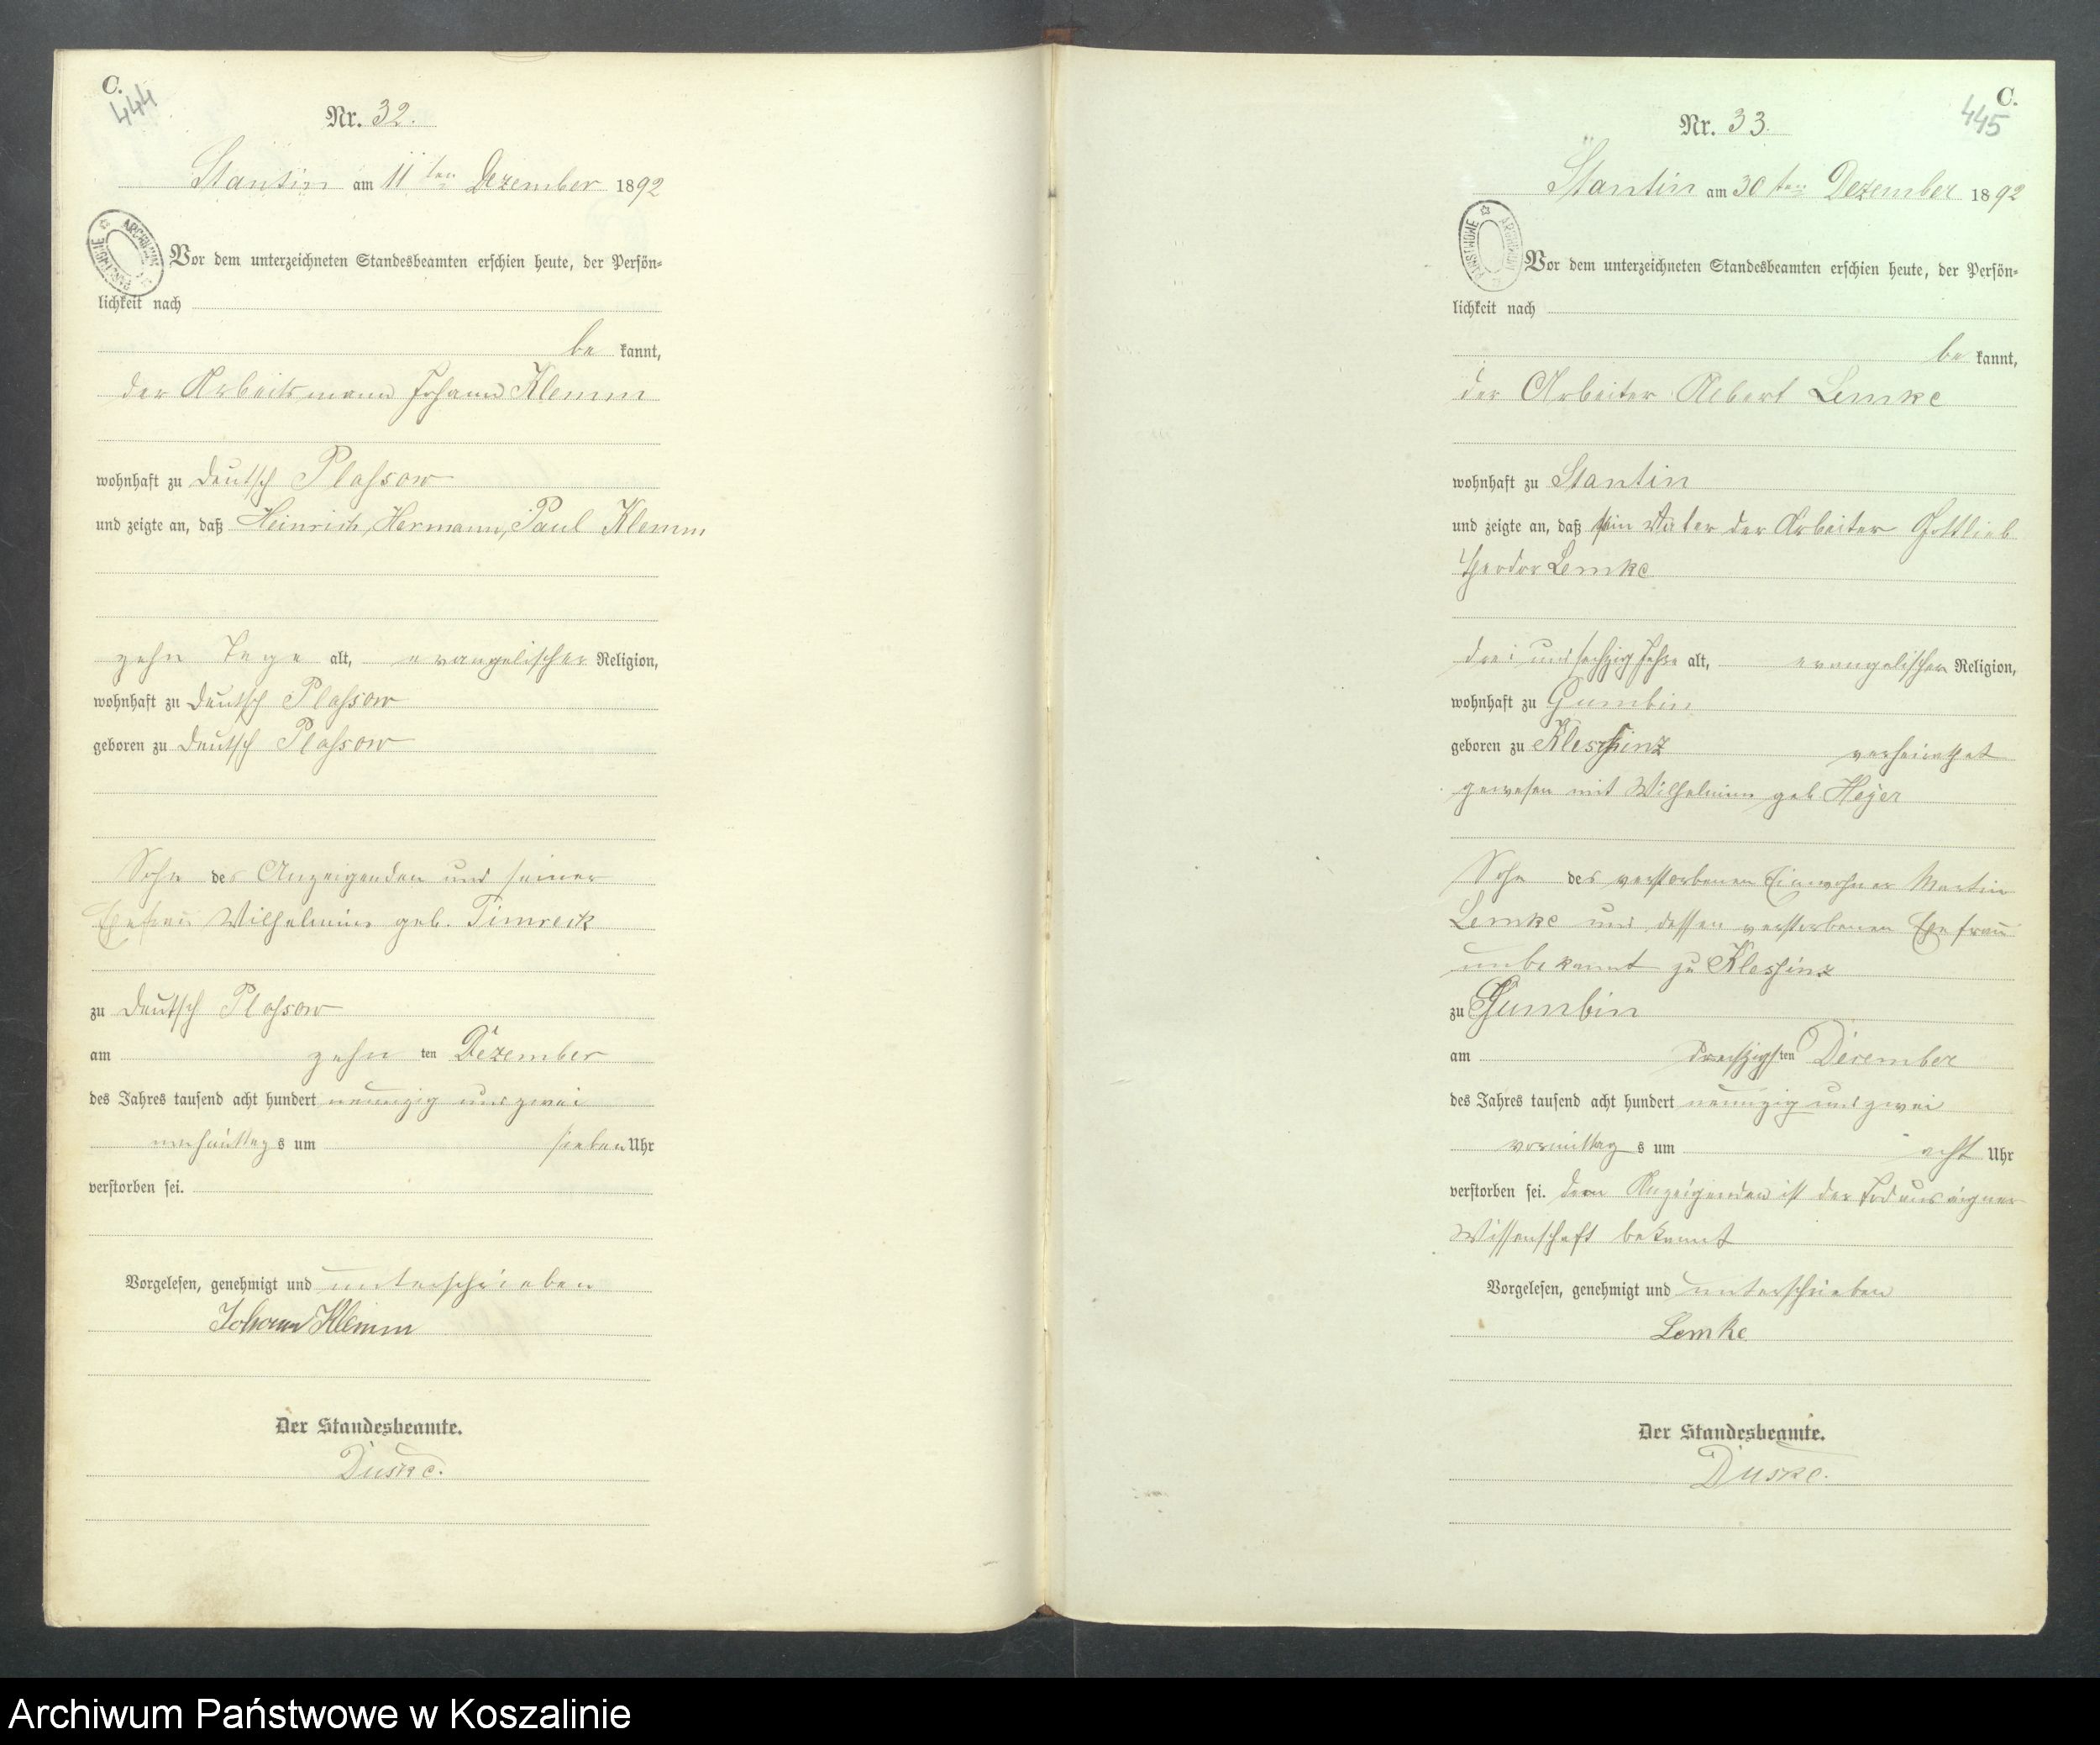 C.
444
Nr. 32.
Stantin am 11 ten Dezember 1892
ARCHIWUM PAŃSTWOWE
Vor dem unterzeichneten Standesbeamten erschien heute, der Persön=
lichkeit nach
be kannt,
der Arbeitsmann Johann Klemm
wohnhaft zu Deutsch Plaßow
und zeigte an, daß Heinrich, Hermann, Paul Klemm
zehn Tage alt, evangelischer Religion,
wohnhaft zu Deutsch Plaßow
geboren zu Deutsch Plaßow
Sohn des Anzeigenden und seiner
Ehefrau Wilhelmine geb. Timreck
zu Deutsch Plaßow
am zehn ten Dezember
des Jahres tausend acht hundert neunzig und zwei
nachmittags um sieben Uhr
verstorben sei.
Vorgelesen, genehmigt und unterschrieben
Johann Klemm
Der Standesbeamte.
Duske.
C.
445
Nr. 33.
Stantin am 30 ten Dezember 1892
ARCHIWUM PAŃSTWOWE
Vor dem unterzeichneten Standesbeamten erschien heute, der Persön=
lichkeit nach
be kannt,
der Arbeiter Albert Lemke
wohnhaft zu Stantin
und zeigte an, daß sein Vater der Arbeiter Gottlieb
Theodor Lemke
drei und sechzig Jahre alt, evangelischer Religion,
wohnhaft zu Gumbin
geboren zu Kleschinz verheirathet
gewesen mit Wilhelmine geb. Heyer
Sohn des verstorbenen Einwohner Martin
Lemke und dessen verstorbenen Ehefrau
unbekannt zu Kleschinz
zu Gumbin
am dreißigsten December
des Jahres tausend acht hundert neunzig und zwei
vormittag s um acht Uhr
verstorben sei. Dem Anzeigenden ist der Tod aus eigner
Wissenschaft bekannt
Vorgelesen, genehmigt und unterschrieben
Lemke
Der Standesbeamte.
Duske.
Archiwum Państwowe w Koszalinie